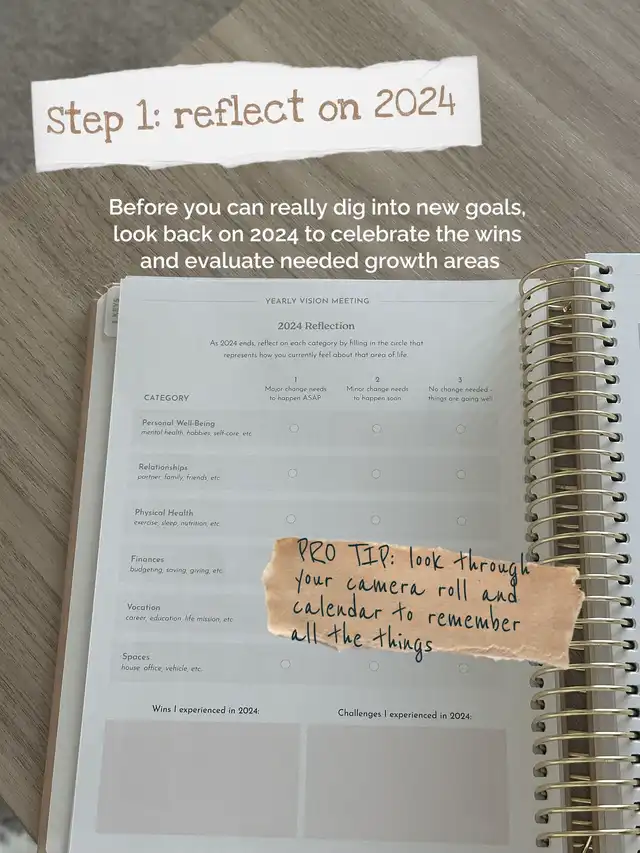 Step 1: reflect on 2024
Before you can really dig into new goals,
look back on 2024 to celebrate the wins
and evaluate needed growth areas
YEARLY VISION MEETING
2024 Reflection
As 2024 ends, reflect on each category by filling in the circle that
represents how you currently feel about that area of life.
CATEGORY
1
Major change needs
to happen ASAP
2
Minor change needs
to happen soon
3
No change needed -
things are going well
Personal Well-Being
mental health, hobbies, self-care, etc.
Relationships
partner, family, friends, etc.
Physical Health
exercise, sleep, nutrition, etc.
Finances
budgeting, saving, giving, etc.
Vocation
career, education, life mission, etc.
Spaces
house, office, vehicle, etc.
PRO TIP: look through
your camera roll and
calendar to remember
all the things
Wins I experienced in 2024:
Challenges I experienced in 2024: